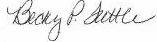 Becky P. Tuttle